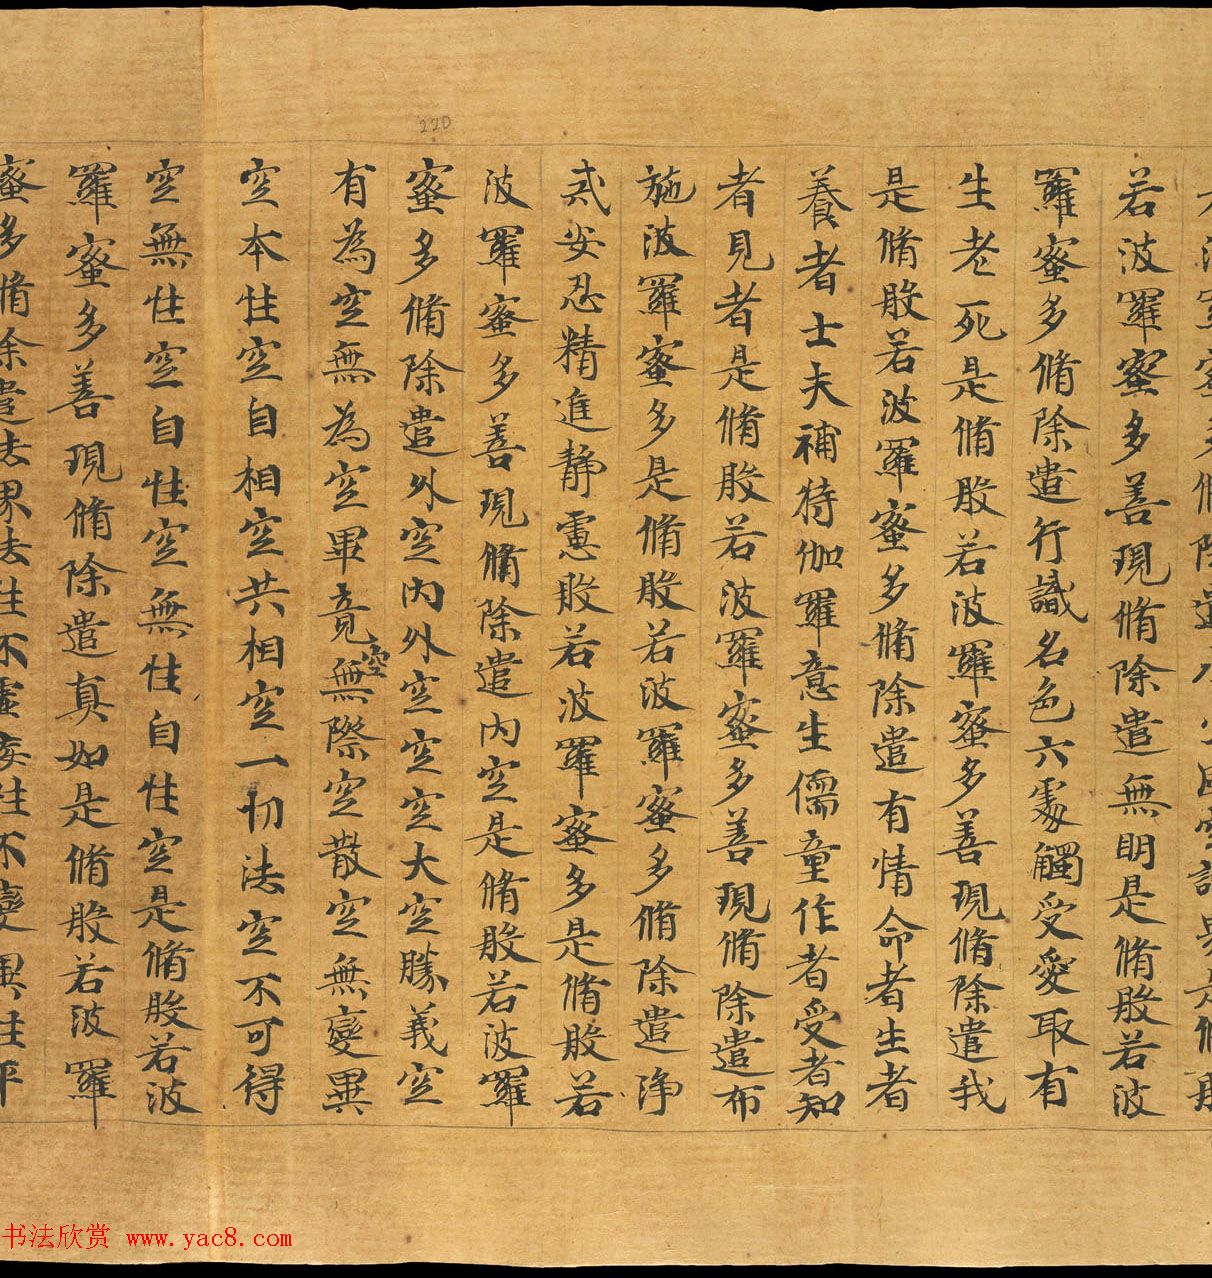 波羅蜜多脩除遣水火風空識界是脩般
若波羅蜜多善現脩除遣無明是脩般若波
羅蜜多脩除遣行識名色六處觸受愛取有
生老死是脩般若波羅蜜多善現脩除遣我
是脩般若波羅蜜多脩除遣有情命者生者
養者士夫補特伽羅意生儒童作者受者知
者見者是脩般若波羅蜜多善現脩除遣布
施波羅蜜多是脩般若波羅蜜多脩除遣淨
戒安忍精進靜慮般若波羅蜜多是脩般若
波羅蜜多善現脩除遣內空是脩般若波羅
220
蜜多脩除遣外空內外空空空大空勝義空
有為空無為空畢竟空無際空散空無變異
空本性空自相空共相空一切法空不可得
空無性空自性空無性自性空是脩般若波
羅蜜多善現脩除遣真如是脩般若波羅
蜜多脩除遣法界法性不虛妄性不變異性平
书法欣赏 www.yac8.com